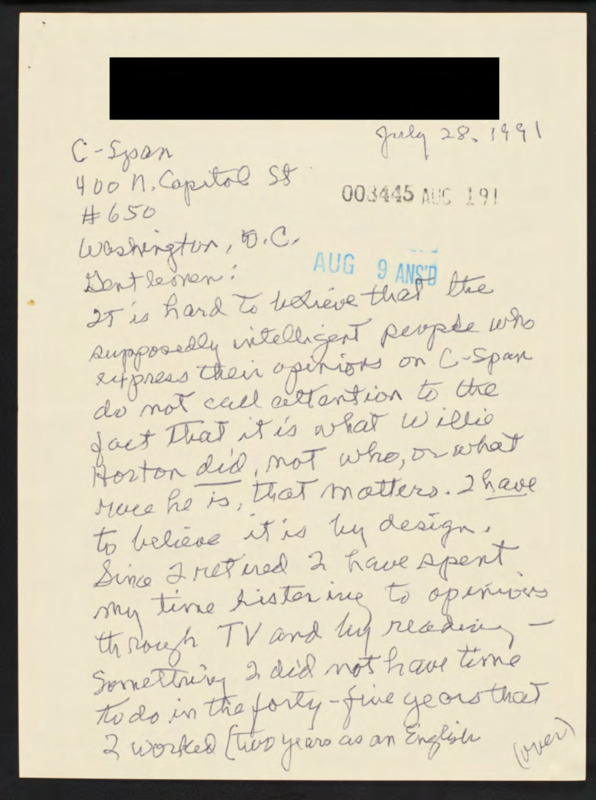 July 28, 1991
C-Span
400 N. Capitol St
#650
Washington, D.C.
003445 AUG 191
AUG 9 ANS'D
Gentlemen:
It is hard to believe that the
supposedly intelligent people who
express their opinions on C-Span
do not call attention to the
fact that it is what Willie
Horton did, not who, or what
race he is, that matters. I have
to believe it is by design.
Since I retired I have spent
my time listening to opinions
through TV and by reading –
Something I did not have time
to do in the forty-five years that
I worked (two years as an English
(over)